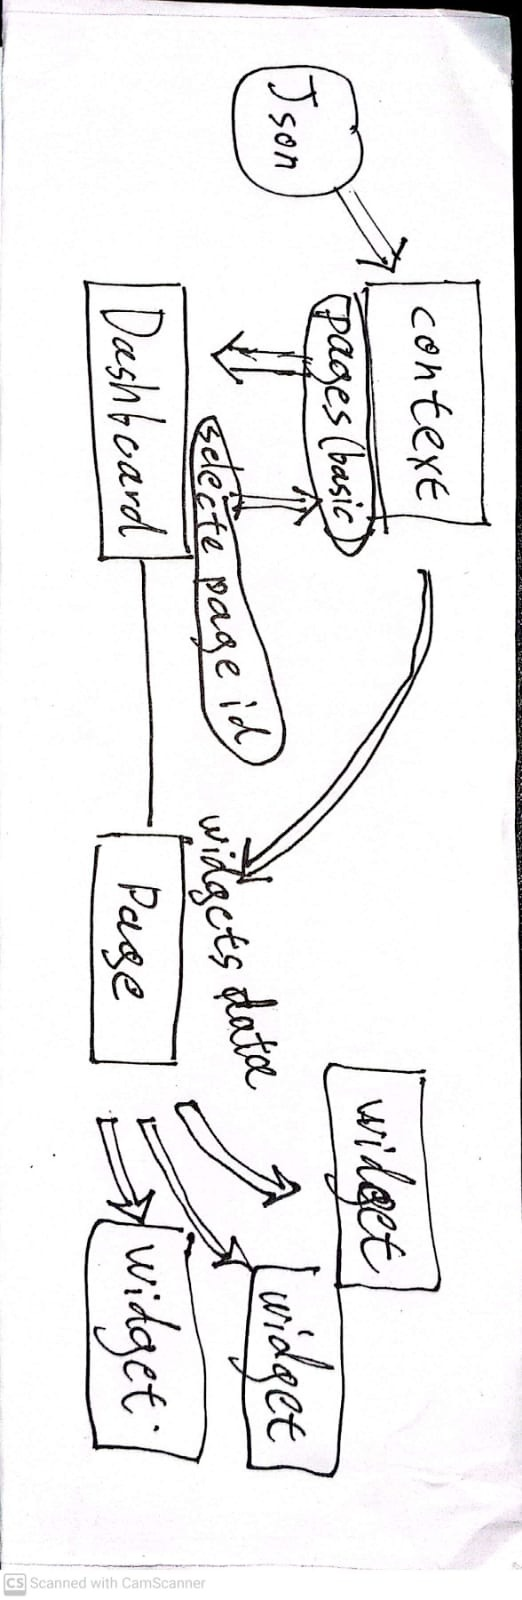 Json
context
pages (basic)
Dashboard
selecte page id
widgets data
Page
widget
widget
widget.
CS Scanned with CamScanner